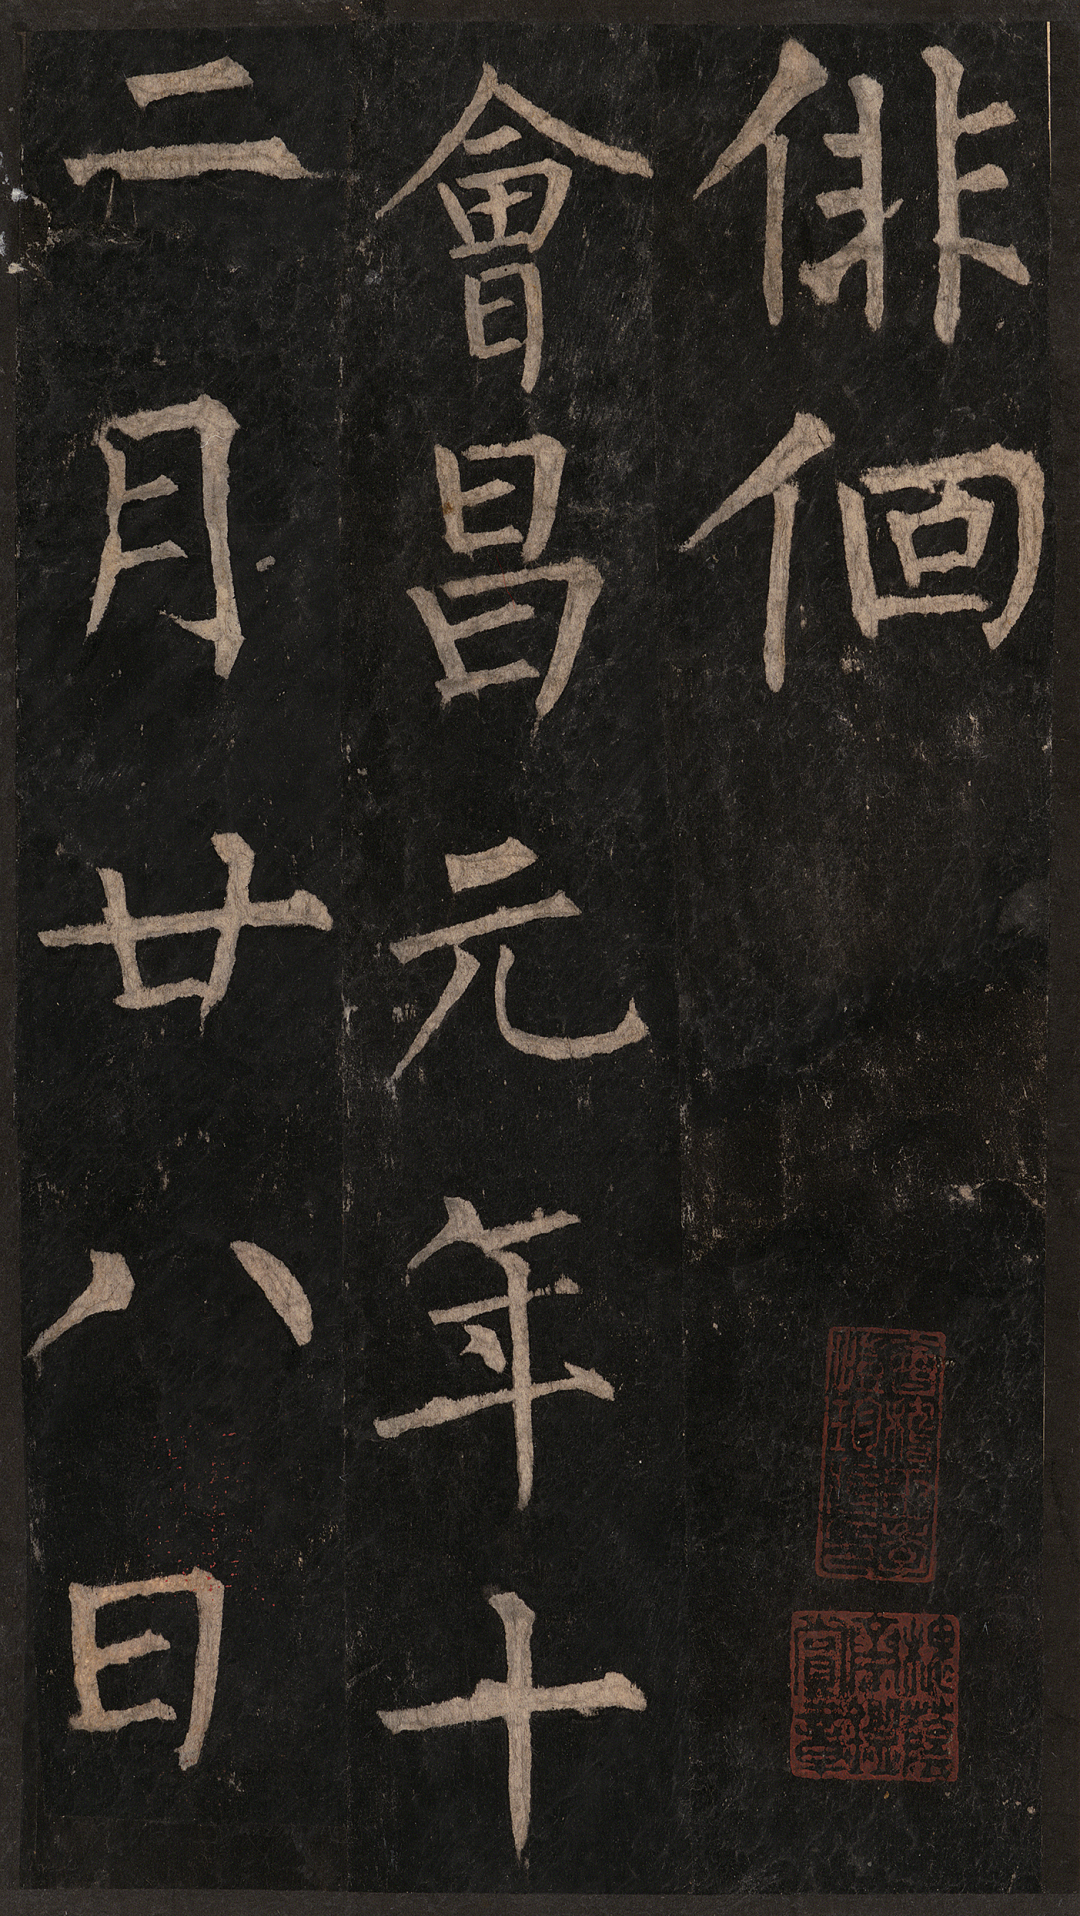 俳佪
會昌元年十
二月廿八日